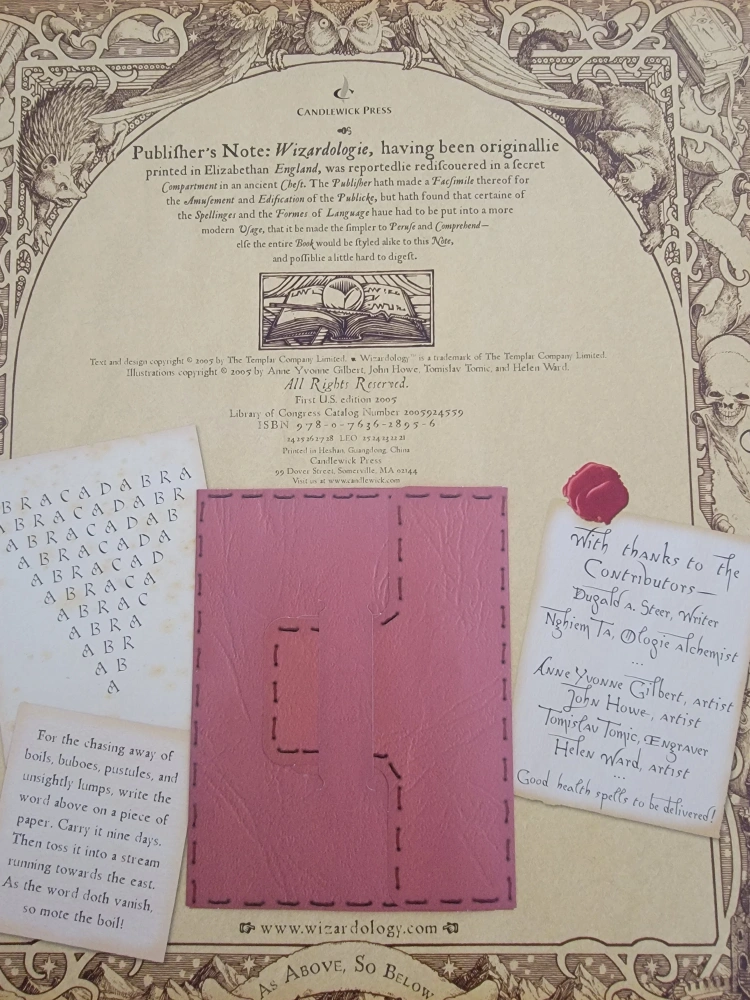 CANDLEWICK PRESS
Publiſher's Note: Wizardologie, having been originallie
printed in Elizabethan England, was reportedlie rediſcouered in a ſecret
Compartment in an ancient Cheſt. The Publiſher hath made a Facſimile thereof for
the Amuſement and Edification of the Publicke, but hath found that certaine of
the Spellinges and the Formes of Language haue had to be put into a more
modern Uſage, that it be made the ſimpler to Peruſe and Comprehend—
elſe the entire Book would be ſtyled alike to this Note,
and poſſiblie a little hard to digeſt.
Text and design copyright © 2005 by The Templar Company Limited. ■ Wizardology™ is a trademark of The Templar Company Limited.
Illustrations copyright © 2005 by Anne Yvonne Gilbert, John Howe, Tomislav Tomic, and Helen Ward.
All Rights Reserved.
First U.S. edition 2005
Library of Congress Catalog Number 2005924559
ISBN 978-0-7636-2895-6
24 25 26 27 28 LEO 25 24 23 22 21
Printed in Heshan, Guangdong, China
Candlewick Press
99 Dover Street, Somerville, MA 02144
Visit us at www.candlewick.com
BRACADABRA
ABRACADABR
ABRACADAB
ABRACADA
ABRACAD
ABRACA
ABRAC
ABRA
ABR
AB
A
For the chasing away of
boils, buboes, pustules, and
unsightly lumps, write the
word above on a piece of
paper. Carry it nine days.
Then toss it into a stream
running towards the east.
As the word doth vanish,
so mote the boil!
With thanks to the
Contributors—
Dugald A. Steer, Writer
Nghiem Ta, Ologie alchemist
...
Anne Yvonne Gilbert, artist
John Howe, artist
Tomislav Tomic, Engraver
Helen Ward, artist
...
Good health spells to be delivered!
www.wizardology.com
As Above, So Below